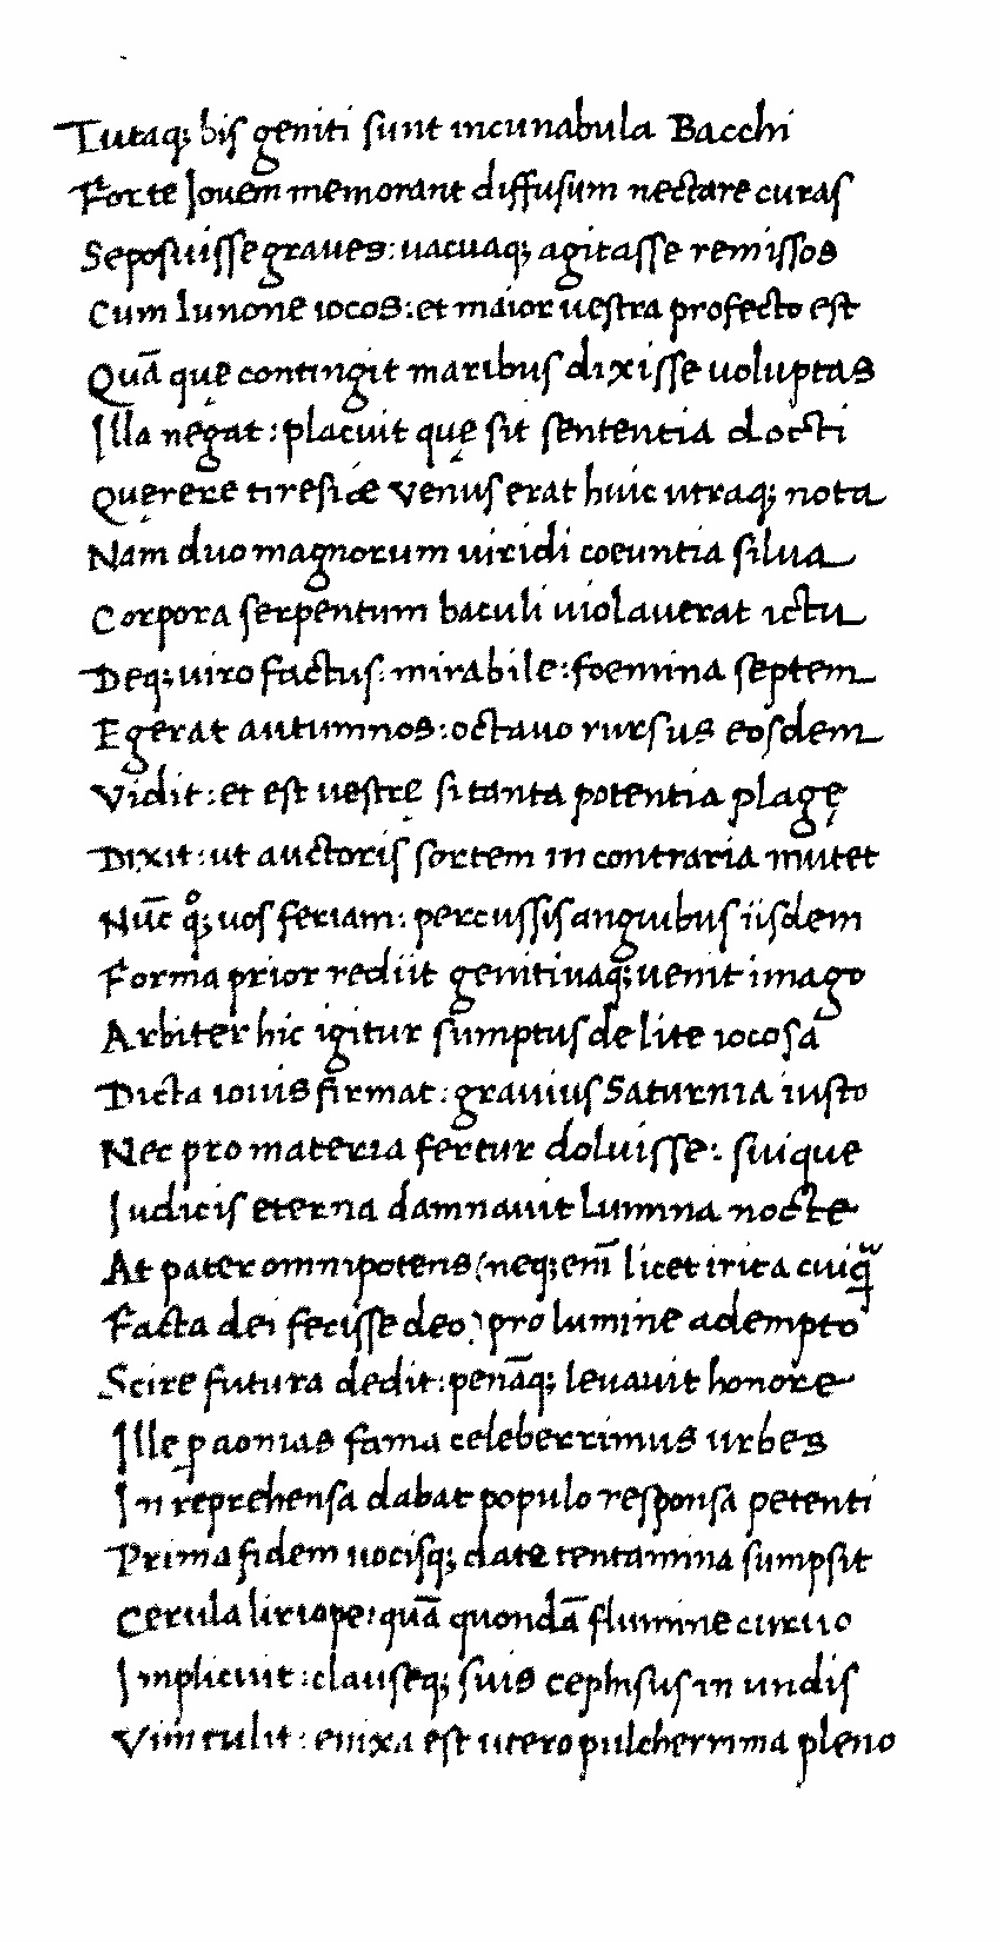 Tutaq; bis geniti sunt incunabula Bacchi
Forte Jouem memorant diffusum nectare curas
Seposuisse graues: uacuaq; agitasse remissos
Cum Iunone iocos: et maior uestra profecto est
Quā quę contingit maribus dixisse uoluptas
Illa negat: placuit quę sit sententia docti
Quęrere tiresiæ Venus erat huic utraq; nota
Nam duo magnorum uiridi coeuntia silua
Corpora serpentum baculi uiolauerat ictu
Deq; uiro factus: mirabile: foemina septem
Egerat autumnos: octauo rursus eosdem
Vidit: et est uestrę si tanta potentia plagę
Dixit: ut auctoris sortem in contraria mutet
Nūc qͦ; uos feriam: percussis anguibus iisdem
Forma prior rediit genitiuaq; uenit imago
Arbiter hic igitur sumptus de lite iocosa
Dicta iouis firmat: grauius Saturnia iusto
Nec pro materia fertur doluisse: suique
Judicis eterna damnauit Lumina nocte
At pater omnipotens (neq; em̄ licet irita cuiqᷓ
Facta dei fecisse deo) pro lumine adempto
Scire futura dedit: penāq; leuauit honore
Ille ꝑ aonias fama celeberrimus urbes
In reprehensa dabat populo responsa petenti
Prima fidem uocisq; date tentamina sumpsit
Cerula liriope: quā quondā flumine curuo
Implicuit: clauseq; suis cephisus in undis
Vim tulit: enixa est utero pulcherrima pleno